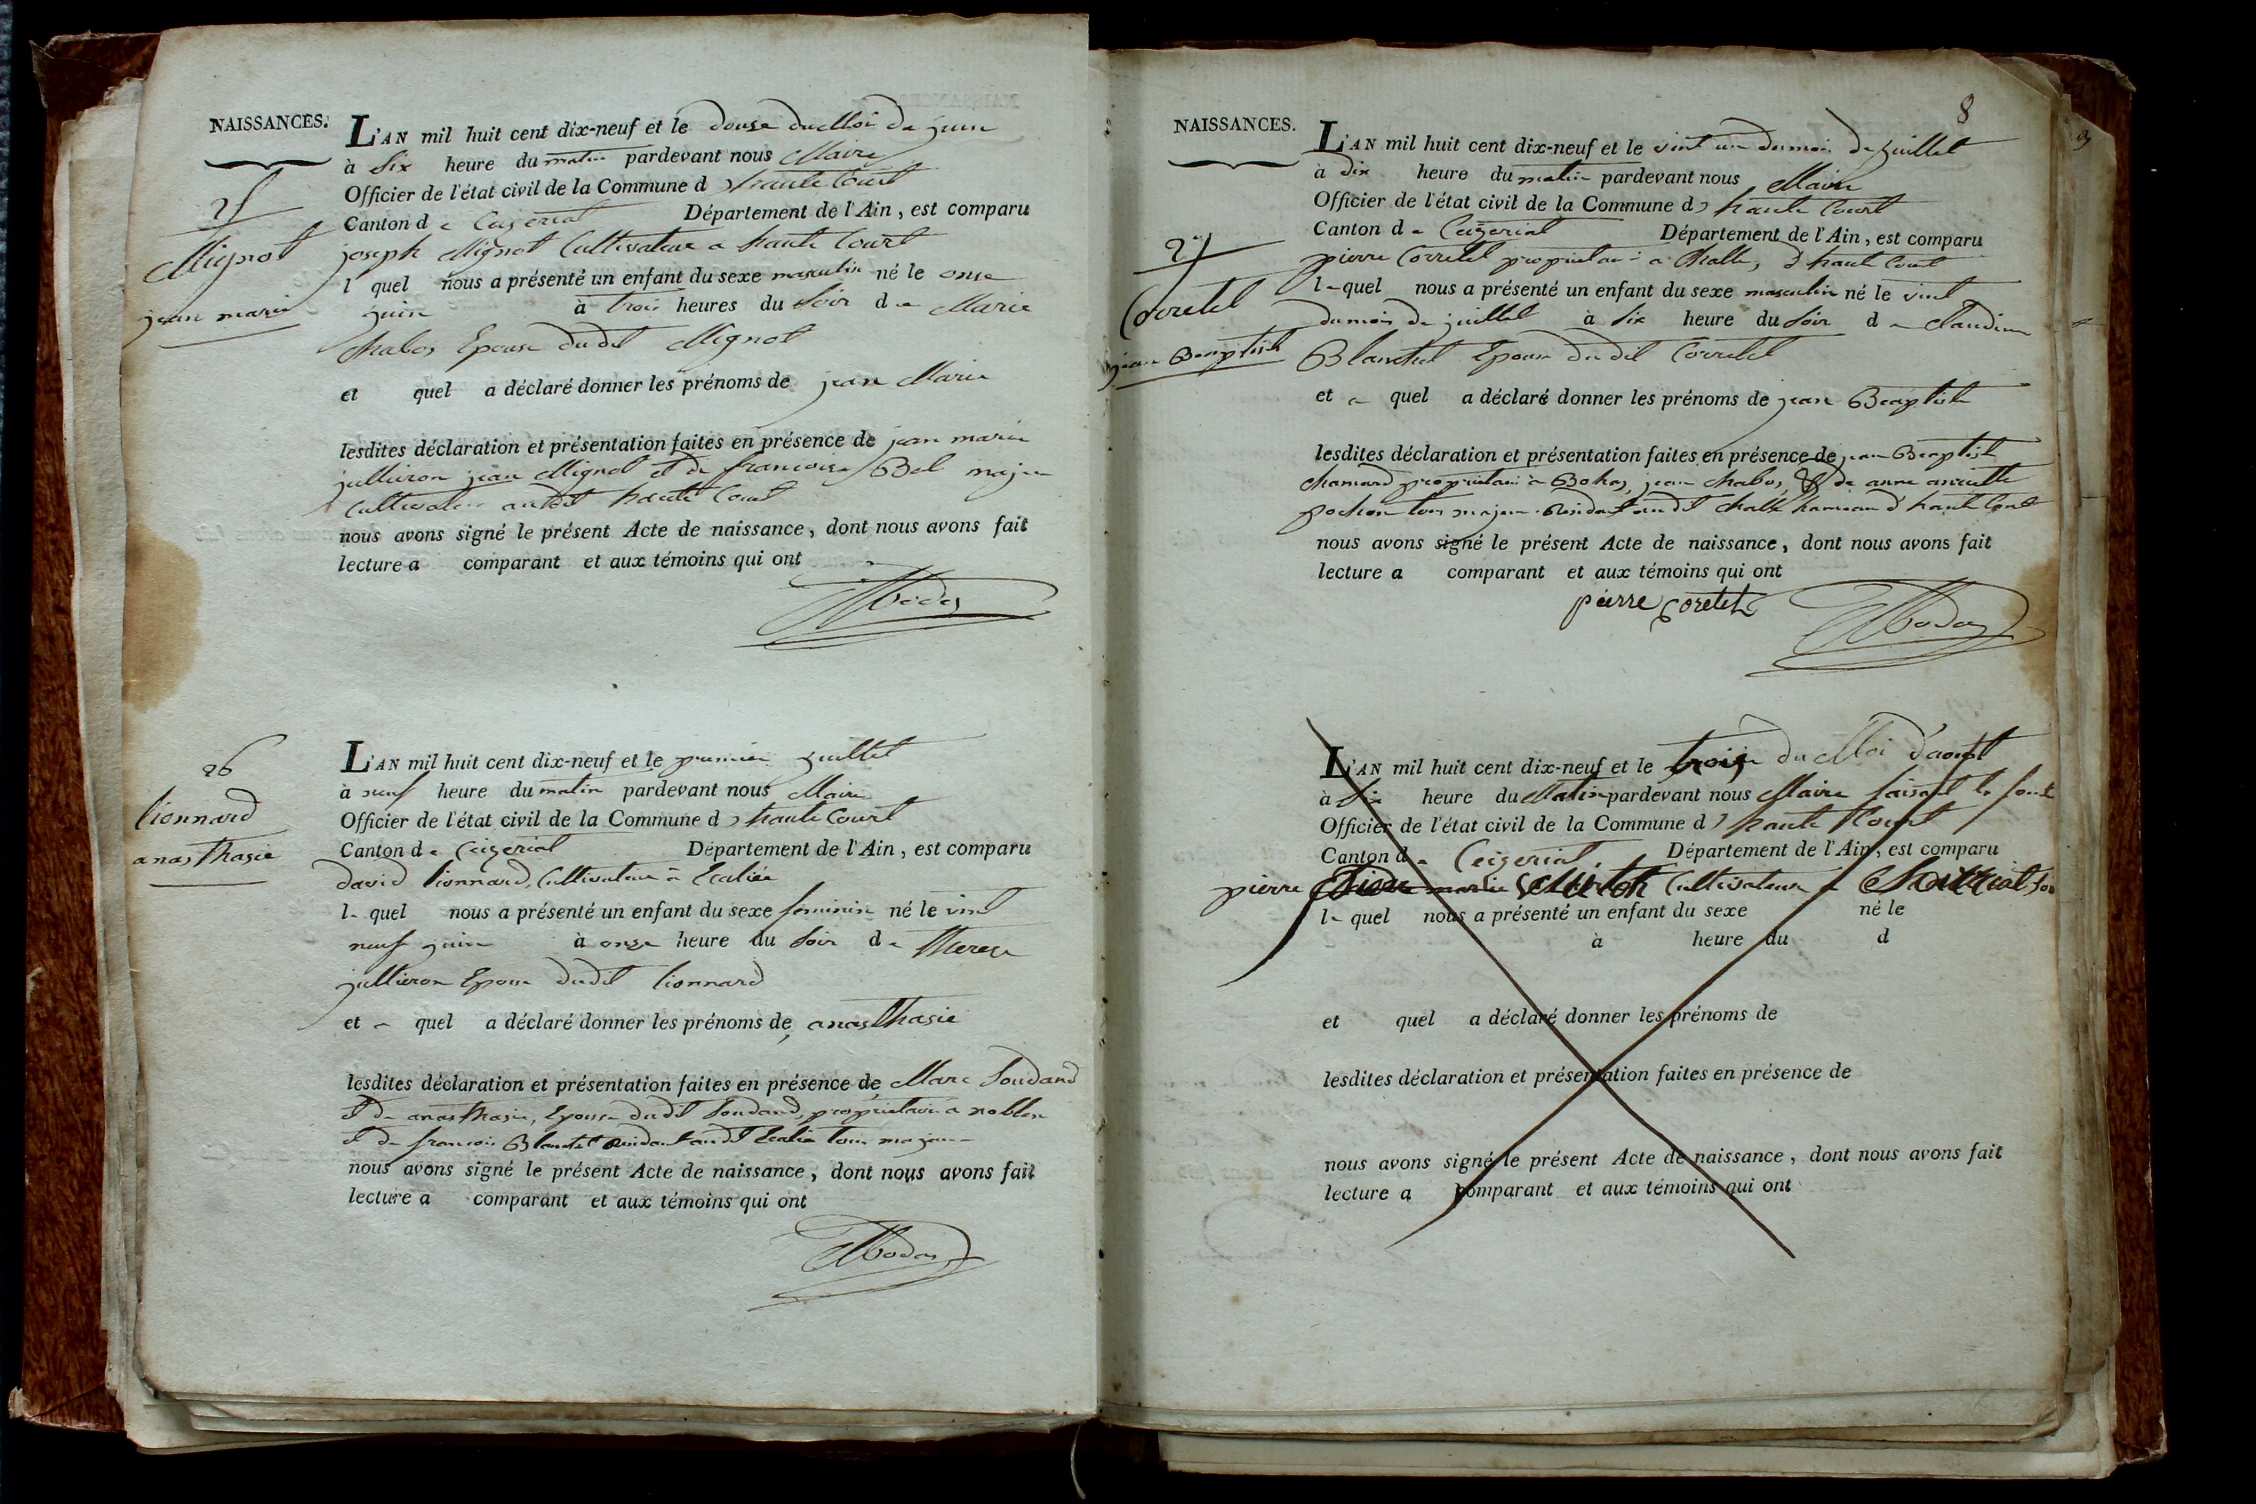 NAISSANCES.
25
Mignot
jean marie
L'AN mil huit cent dix-neuf et le douse du Moi de juin
à six heure du matin pardevant nous Maire
Officier de l'état civil de la Commune d haute Court
Canton de Ceizeriat Département de l'Ain, est comparu
joseph Mignot Cultivateur a haute Court
l quel nous a présenté un enfant du sexe masculin né le onse
juin à trois heures du soir de Marie
Chabos Epouse dudit Mignot
et quel a déclaré donner les prénoms de jean Marie
lesdites déclaration et présentation faites en présence de jean marie
jullieron jean Mignot et de francoise Bel majeu
Cultivateur audit haute Court
nous avons signé le présent Acte de naissance, dont nous avons fait
lecture a comparant et aux témoins qui ont
26
lionnard
anasthasie
L'AN mil huit cent dix-neuf et le premier juillet
à neuf heure du matin pardevant nous Maire
Officier de l'état civil de la Commune d haute Court
Canton de Ceizeriat Département de l'Ain, est comparu
david lionnard, Cultivateur a
le quel nous a présenté un enfant du sexe feminin né le vint
neuf juin à onze heure du soir de therese
jullieron Epouse dudit lionnard
et le quel a déclaré donner les prénoms de anasthasie
lesdites déclaration et présentation faites en présence de Marc Soudand
et de anasthasie, Epouse dudit Soudand, proprietaire a noblen
et de francois Blanchet Residant audit tous majeur
nous avons signé le présent Acte de naissance, dont nous avons fait
lecture a comparant et aux témoins qui ont
8
NAISSANCES.
27
Corretel
jean Beaptiste
L'AN mil huit cent dix-neuf et le vint un du mois de juillet
à dix heure du matin pardevant nous Maire
Officier de l'état civil de la Commune d haute Court
Canton de Ceizeriat Département de l'Ain, est comparu
pierre Corretel proprietaire a Challe, d haute Court
le quel nous a présenté un enfant du sexe masculin né le vint
du mois de juillet à six heure du soir de Claudine
Blanchet Epouse dudit Corretel
et le quel a déclaré donner les prénoms de jean Beaptiste
lesdites déclaration et présentation faites en présence de jean Beaptiste
Chanard proprietaire a Bohas, jean Chabos, & de anne
pochon tous majeur Residant audit Challe hameau d haute Court
nous avons signé le présent Acte de naissance, dont nous avons fait
lecture a comparant et aux témoins qui ont
pierre coretel
L'AN mil huit cent dix-neuf et le trois du Moi d'aoust
à six heure du Matin pardevant nous Maire faisant la fonct
Officier de l'état civil de la Commune d haute Court
Canton de Ceizeriat, Département de l'Ain, est comparu
pierre marie Cultivateur a
le quel nous a présenté un enfant du sexe né le
à heure du d
et quel a déclaré donner les prénoms de
lesdites déclaration et présentation faites en présence de
nous avons signé le présent Acte de naissance, dont nous avons fait
lecture a comparant et aux témoins qui ont